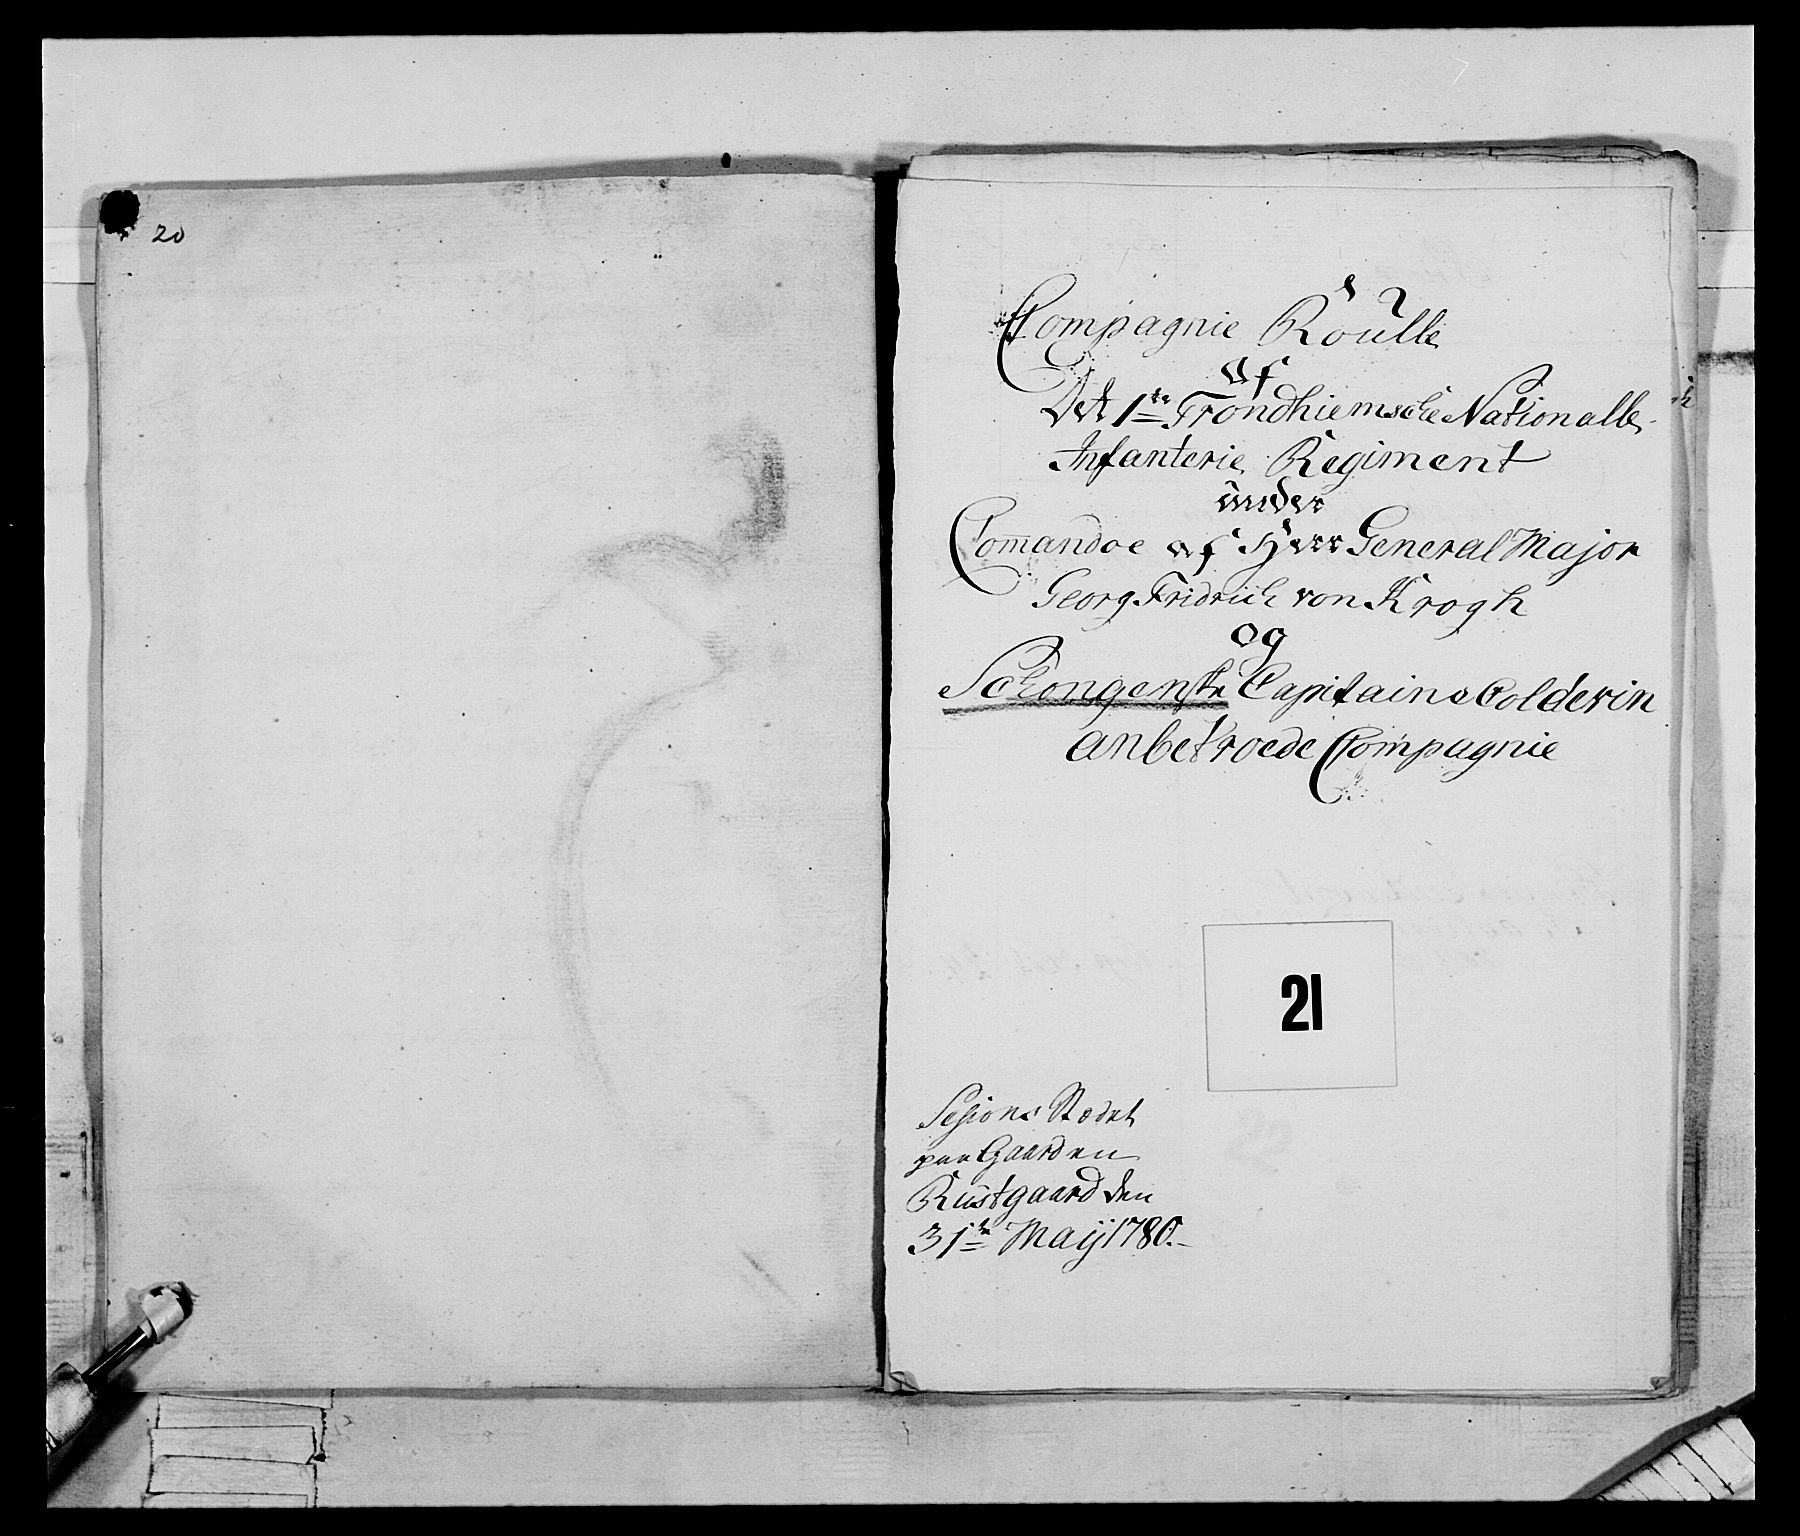 20
Compagnie Roulle
af
Det 1te Trondhiemsche Nationalle
Infanterie Regiment
under
Comandoe af Herr General Major
Georg Fridrich von Krogh
og
Schongenske Capitaine Colderin
anbetroede Compagnie
21
Sesions Stædet
paa Gaarden
Rustgaard den
31te Maij 1780.